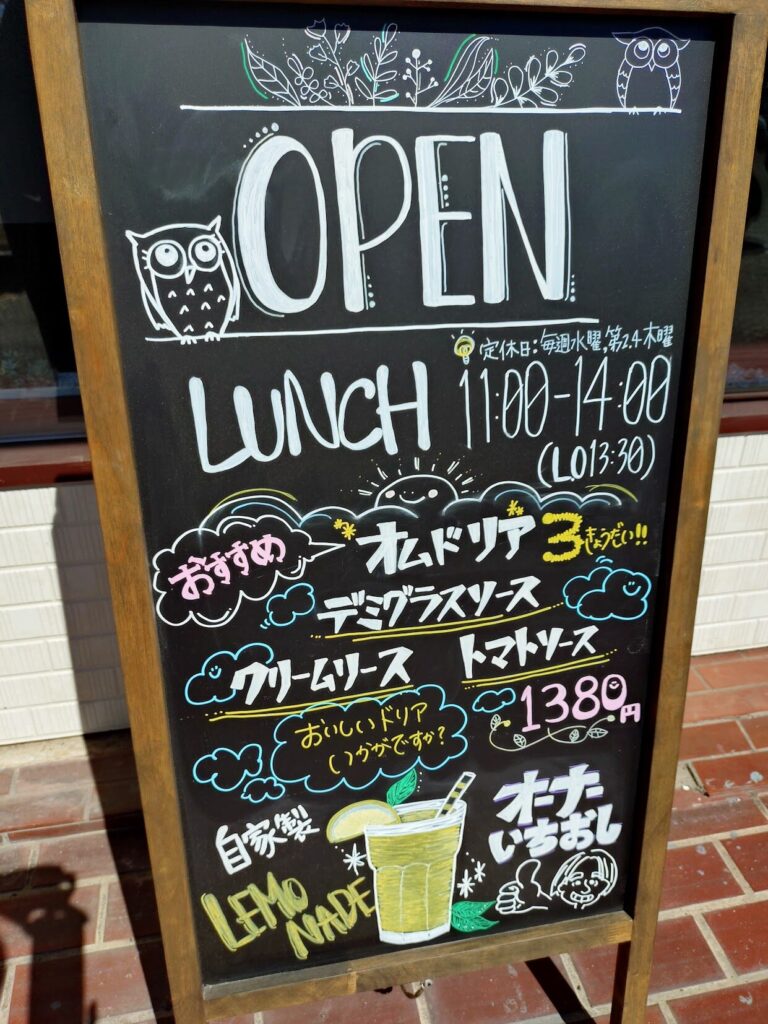 OPEN
定休日:毎週水曜,第2.4木曜
LUNCH 11:00-14:00
(LO13:30)
おすすめ
オムドリア 3きょうだい!!
デミグラスソース
クリームソース トマトソース
1380円
おいしいドリア
いかがですか?
自家製
LEMO
NADE
オーナー
いちおし